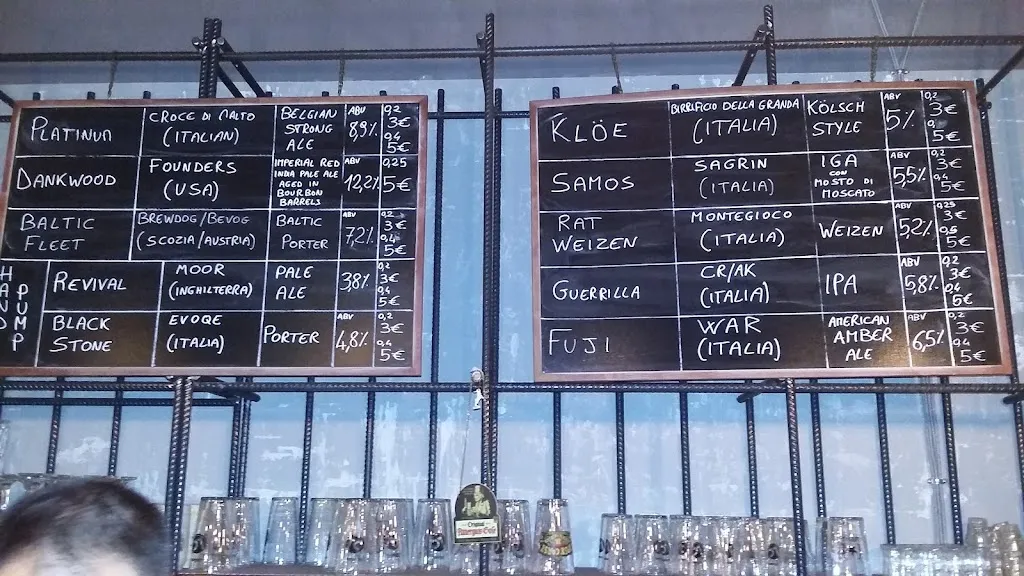 PLATINUM
CROCE DI MALTO
(ITALIAN)
BELGIAN
STRONG
ALE
ABV
8,9%
0,2
3€
0,4
5€
DANKWOOD
FOUNDERS
(USA)
IMPERIAL RED
INDIA PALE ALE
AGED IN
BOURBON
BARRELS
ABV
12,2%
0,25
5€
BALTIC
FLEET
BREWDOG/BEVOG
(SCOZIA/AUSTRIA)
BALTIC
PORTER
ABV
7,2%
0,2
3€
0,4
5€
HAND
PUMP
REVIVAL
MOOR
(INGHILTERRA)
PALE
ALE
ABV
3,8%
0,2
3€
0,4
5€
BLACK
STONE
EVOQE
(ITALIA)
PORTER
ABV
4,8%
0,2
3€
0,4
5€
KLÖE
BIRRIFICIO DELLA GRANDA
(ITALIA)
KÖLSCH
STYLE
ABV
5%
0,2
3€
5€
SAMOS
SAGRIN
(ITALIA)
IGA
CON
MOSTO DI
MOSCATO
ABV
5,5%
0,2
3€
0,4
5€
RAT
WEIZEN
MONTEGIOCO
(ITALIA)
WEIZEN
ABV
5,2%
0,25
3€
0,5
5€
GUERRILLA
CR/AK
(ITALIA)
IPA
ABV
5,8%
0,2
3€
0,4
5€
FUJI
WAR
(ITALIA)
AMERICAN
AMBER
ALE
ABV
6,5%
0,2
3€
0,4
5€